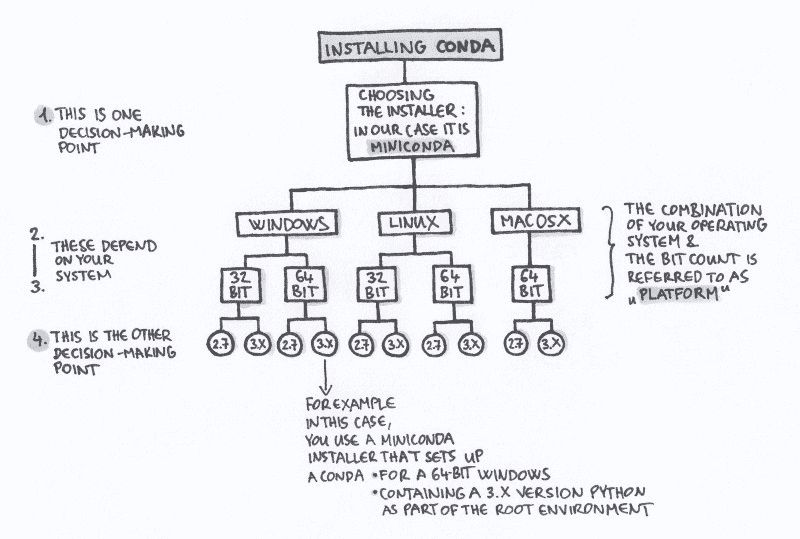 INSTALLING CONDA
CHOOSING
THE INSTALLER:
IN OUR CASE IT IS
MINICONDA
1. THIS IS ONE
DECISION-MAKING
POINT
WINDOWS
LINUX
MACOSX
THE COMBINATION
OF YOUR OPERATING
SYSTEM &
THE BIT COUNT IS
REFERRED TO AS
„PLATFORM"
2.
3.
THESE DEPEND
ON YOUR
SYSTEM
32
BIT
64
BIT
32
BIT
64
BIT
64
BIT
4. THIS IS THE OTHER
DECISION-MAKING
POINT
2.7
3.X
2.7
3.X
2.7
3.X
2.7
3.X
2.7
3.X
FOR EXAMPLE
IN THIS CASE,
YOU USE A MINICONDA
INSTALLER THAT SETS UP
A CONDA • FOR A 64-BIT WINDOWS
• CONTAINING A 3.X VERSION PYTHON
AS PART OF THE ROOT ENVIRONMENT